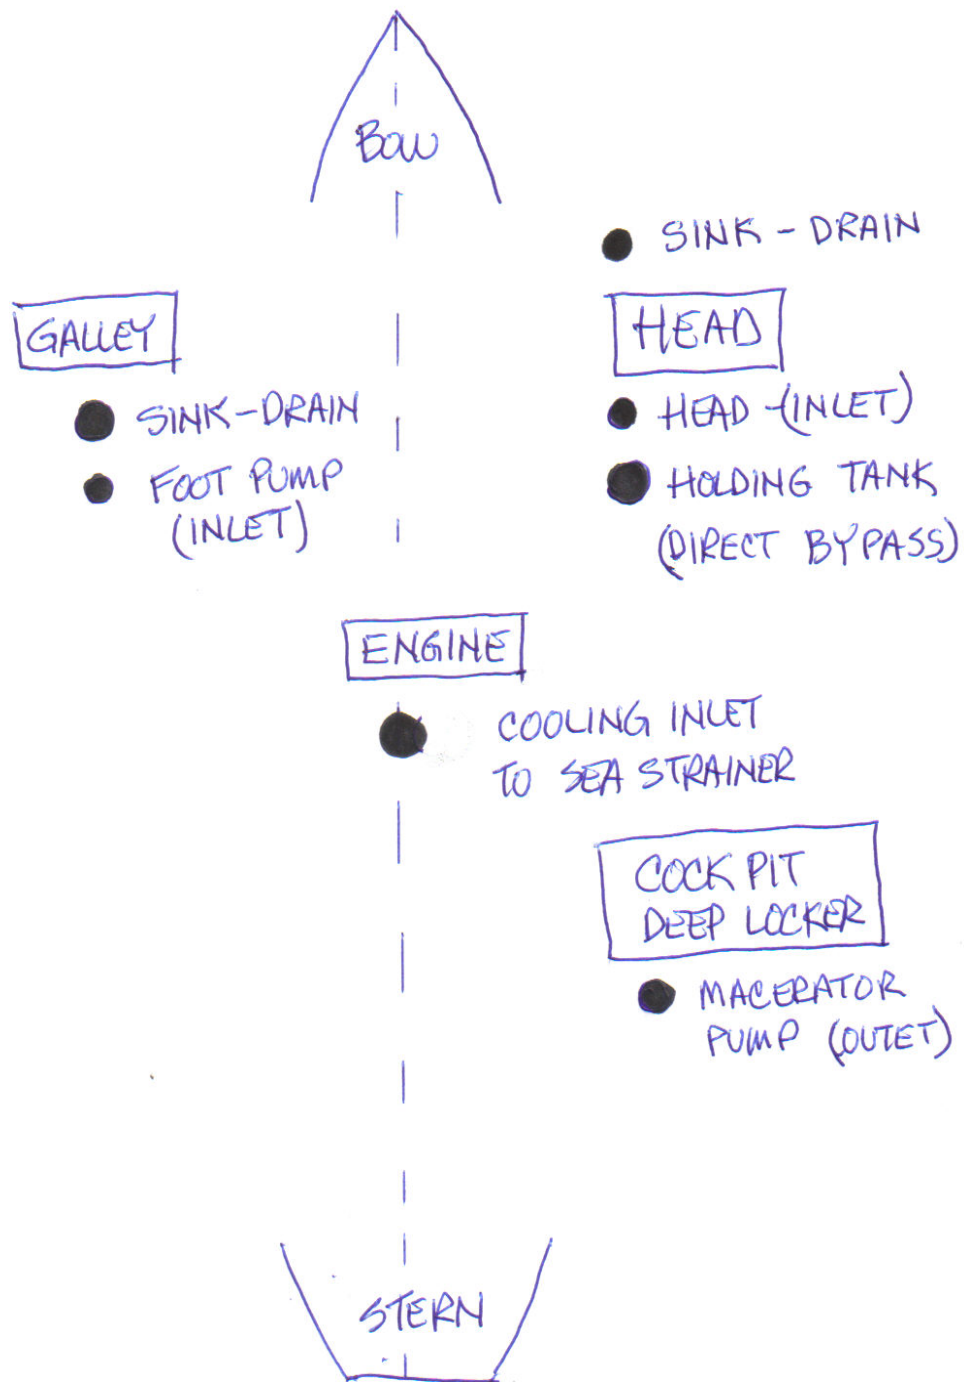 BOW
SINK - DRAIN
GALLEY
HEAD
SINK-DRAIN
HEAD -(INLET)
FOOT PUMP
(INLET)
HOLDING TANK
(DIRECT BYPASS)
ENGINE
COOLING INLET
TO SEA STRAINER
COCKPIT
DEEP LOCKER
MACERATOR
PUMP (OUTET)
STERN